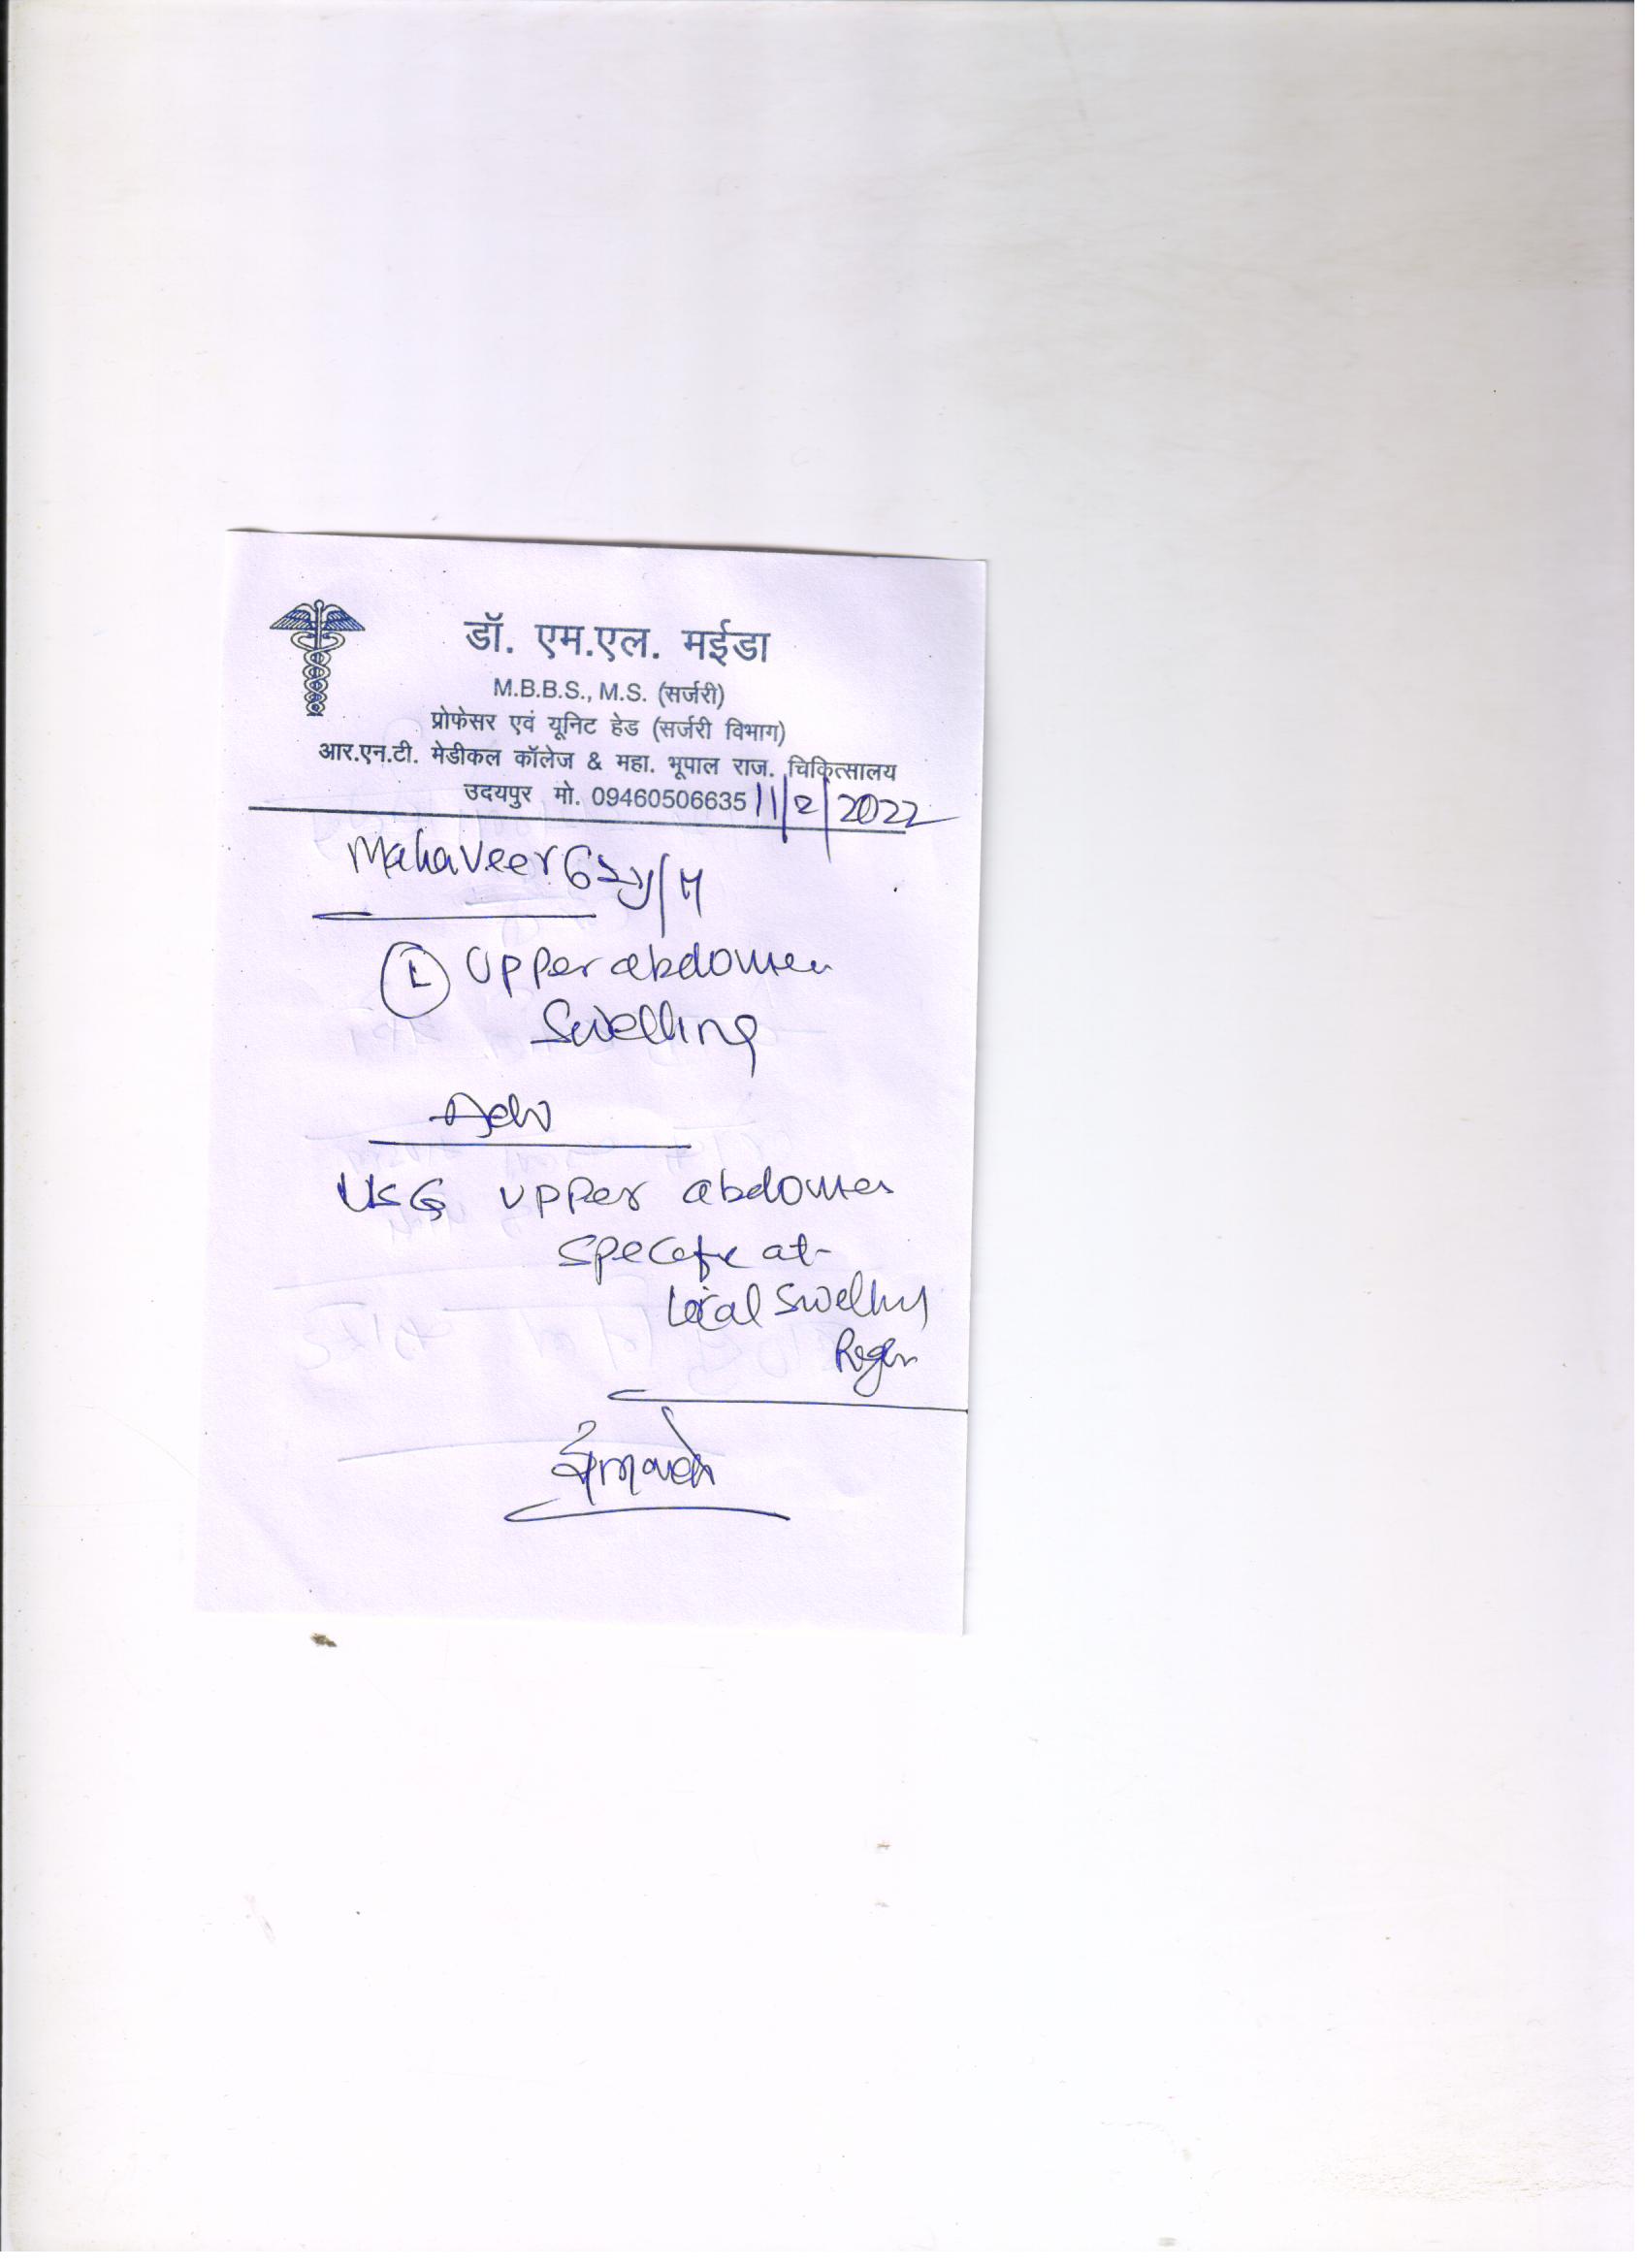 डॉ. एम.एल. मईडा
M.B.B.S., M.S. (सर्जरी)
प्रोफेसर एवं यूनिट हेड (सर्जरी विभाग)
आर.एन.टी. मेडीकल कॉलेज & महा. भूपाल राज. चिकित्सालय
उदयपुर मो. 09460506635 11/2/2022
Mahaveer 62y/M
(L) Upper abdomen
Swelling
Adv
USG upper abdomen
at
Local Swelling